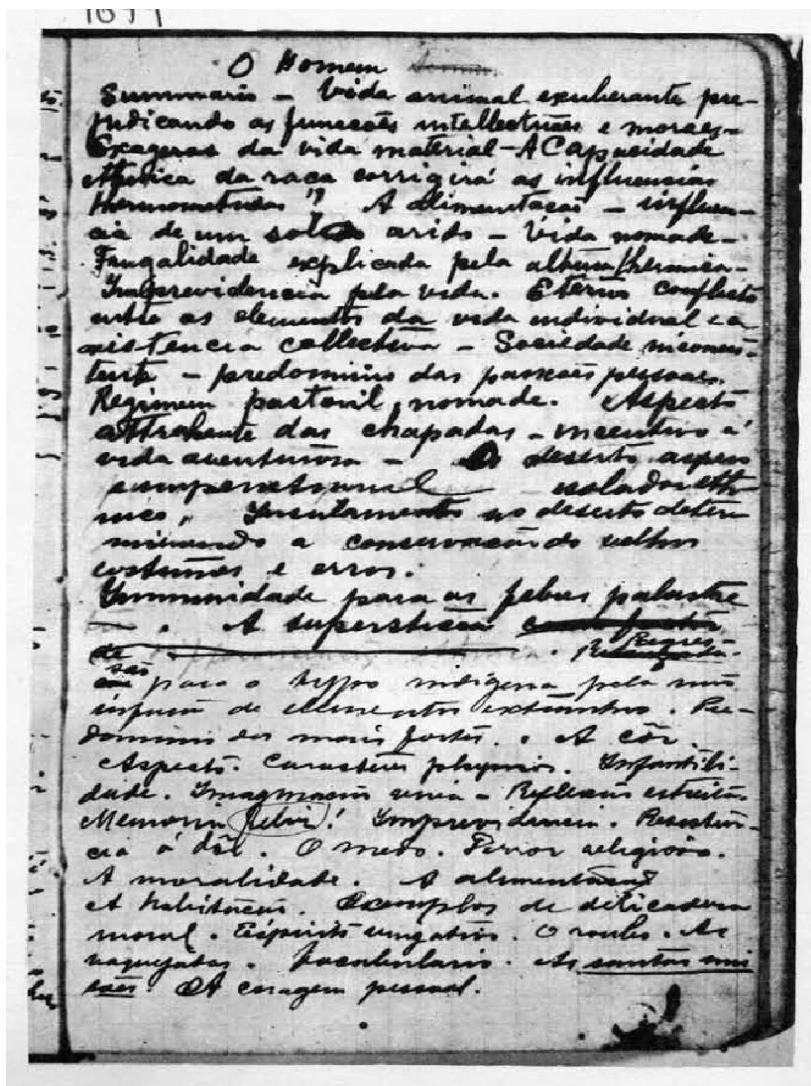 O Homem
Summario – Vida animal exuberante pre-
judicando as funcções intellectuaes e moraes –
Exageros da vida material – A Capacidade
da raça corrigirá as influencias
A alimentação – influen-
cia de um solo arido – Vida nomade –
Frugalidade explicada pela thermica –
Imprevidencia pela vida. Eterno conflicto
entre os elementos da vida individual e a
existencia collectiva – Sociedade
– predominio das paixões pessoaes.
Regimen pastoril nomade. Aspecto
attrahente das chapadas – incentivo á
vida aventurosa – O deserto aspero
isolador eth
nico, Insulamento no deserto deter
minando a conservação de velhos
costumes e erros.
Immunidade para as febres palustre
. A superstição
Regres-
são para o typo indigena pela
infusão de elementos extranhos. Pre-
dominio dos mais fortes. A côr
Aspecto. Caracteres physicos. Infantili-
dade. Imaginação viva – Reflexão estreita
Memoria feliz! Imprevidencia. Resisten-
cia á dôr. O medo. Terror religioso.
A moralidade. A alimentação
A habitação. Exemplos de delicadeza
moral. Espirito vingativo. O roubo. As
vaquejadas. Vocabulario. As santas mis
sões. A coragem pessoal.